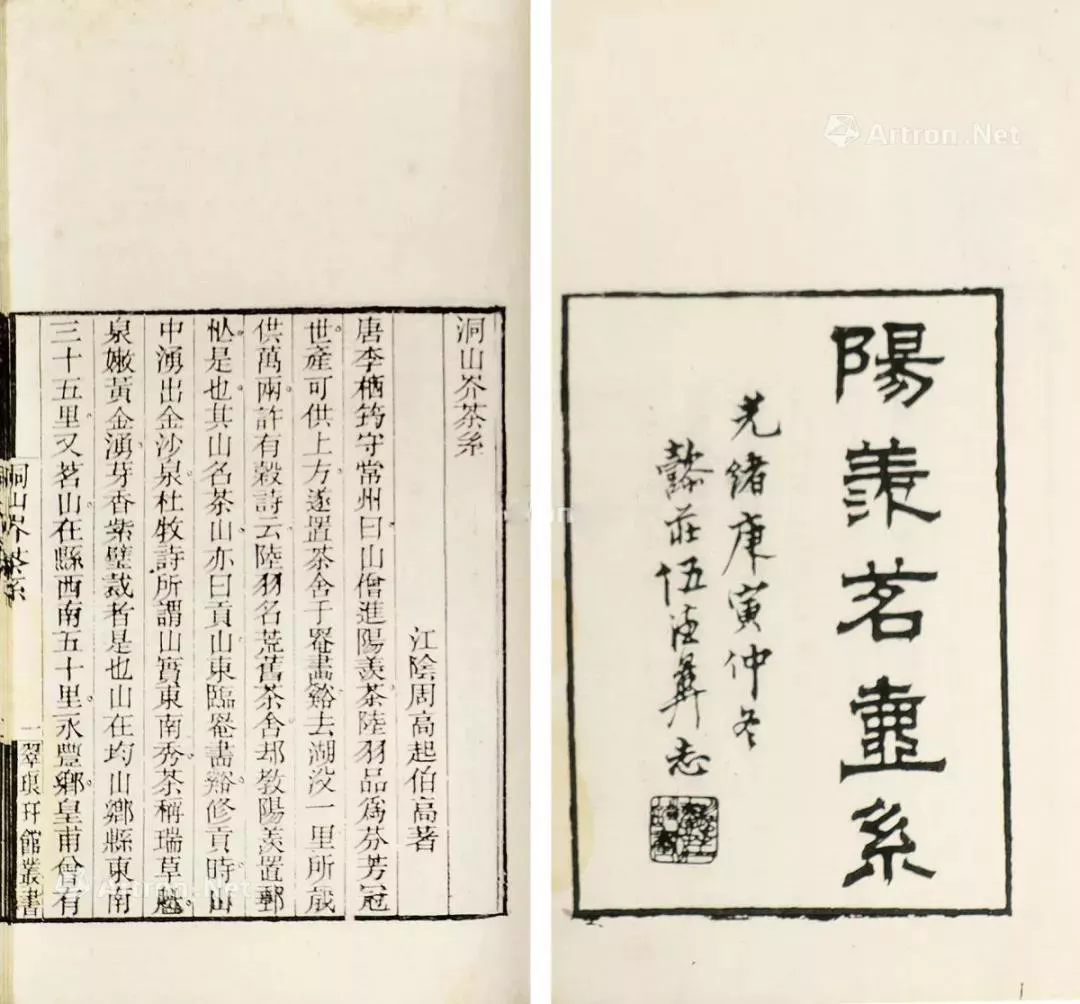 陽羨茗壷系
光緒庚寅仲冬
懿莊伍德彝志
洞山岕茶系
江陰周高起伯高著
唐李栖筠守常州曰山僧進陽羨茶陸羽品爲芬芳冠
世產可供上方遂置茶舍于罨畵谿去湖㳇一里所歲
供萬兩許有穀詩云陸羽名荒舊茶舍却敎陽羨置郵
忙是也其山名茶山亦曰貢山東臨罨畵谿修貢時山
中湧出金沙泉杜牧詩所謂山實東南秀茶稱瑞草魁
泉嫩黃金湧芽香紫璧裁者是也山在均山鄉縣東南
三十五里又茗山在縣西南五十里永豐鄉皇甫曾有
洞山岕茶系
二
翠琅玕館叢書
Artron.Net
Artron.Net